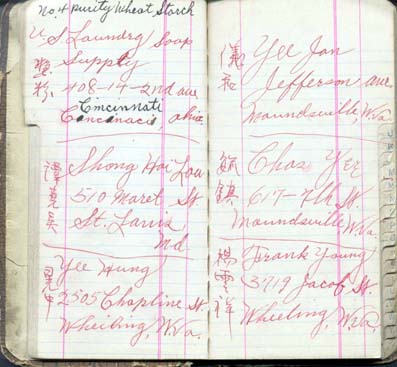 No. 4 purity Wheat Starch
U S Laundry Soap
Supply
漿粉 408-14-2nd ave
Cincinnati
Concinacis, Ohio.
Shong Hoi Lou
510 Maret St
St. Louis
Md
Yee Hung
2505 Chapline St.
Wheiling, W.Va.
儀和 Yee Jon
Jefferson ave
Moundsville, W.Va
毓鎮 Chas Yee
617-7th St.
Moundsville W.Va.
楊雲祥 Frank Young
3719 Jacob St.
Wheeling, W.Va.